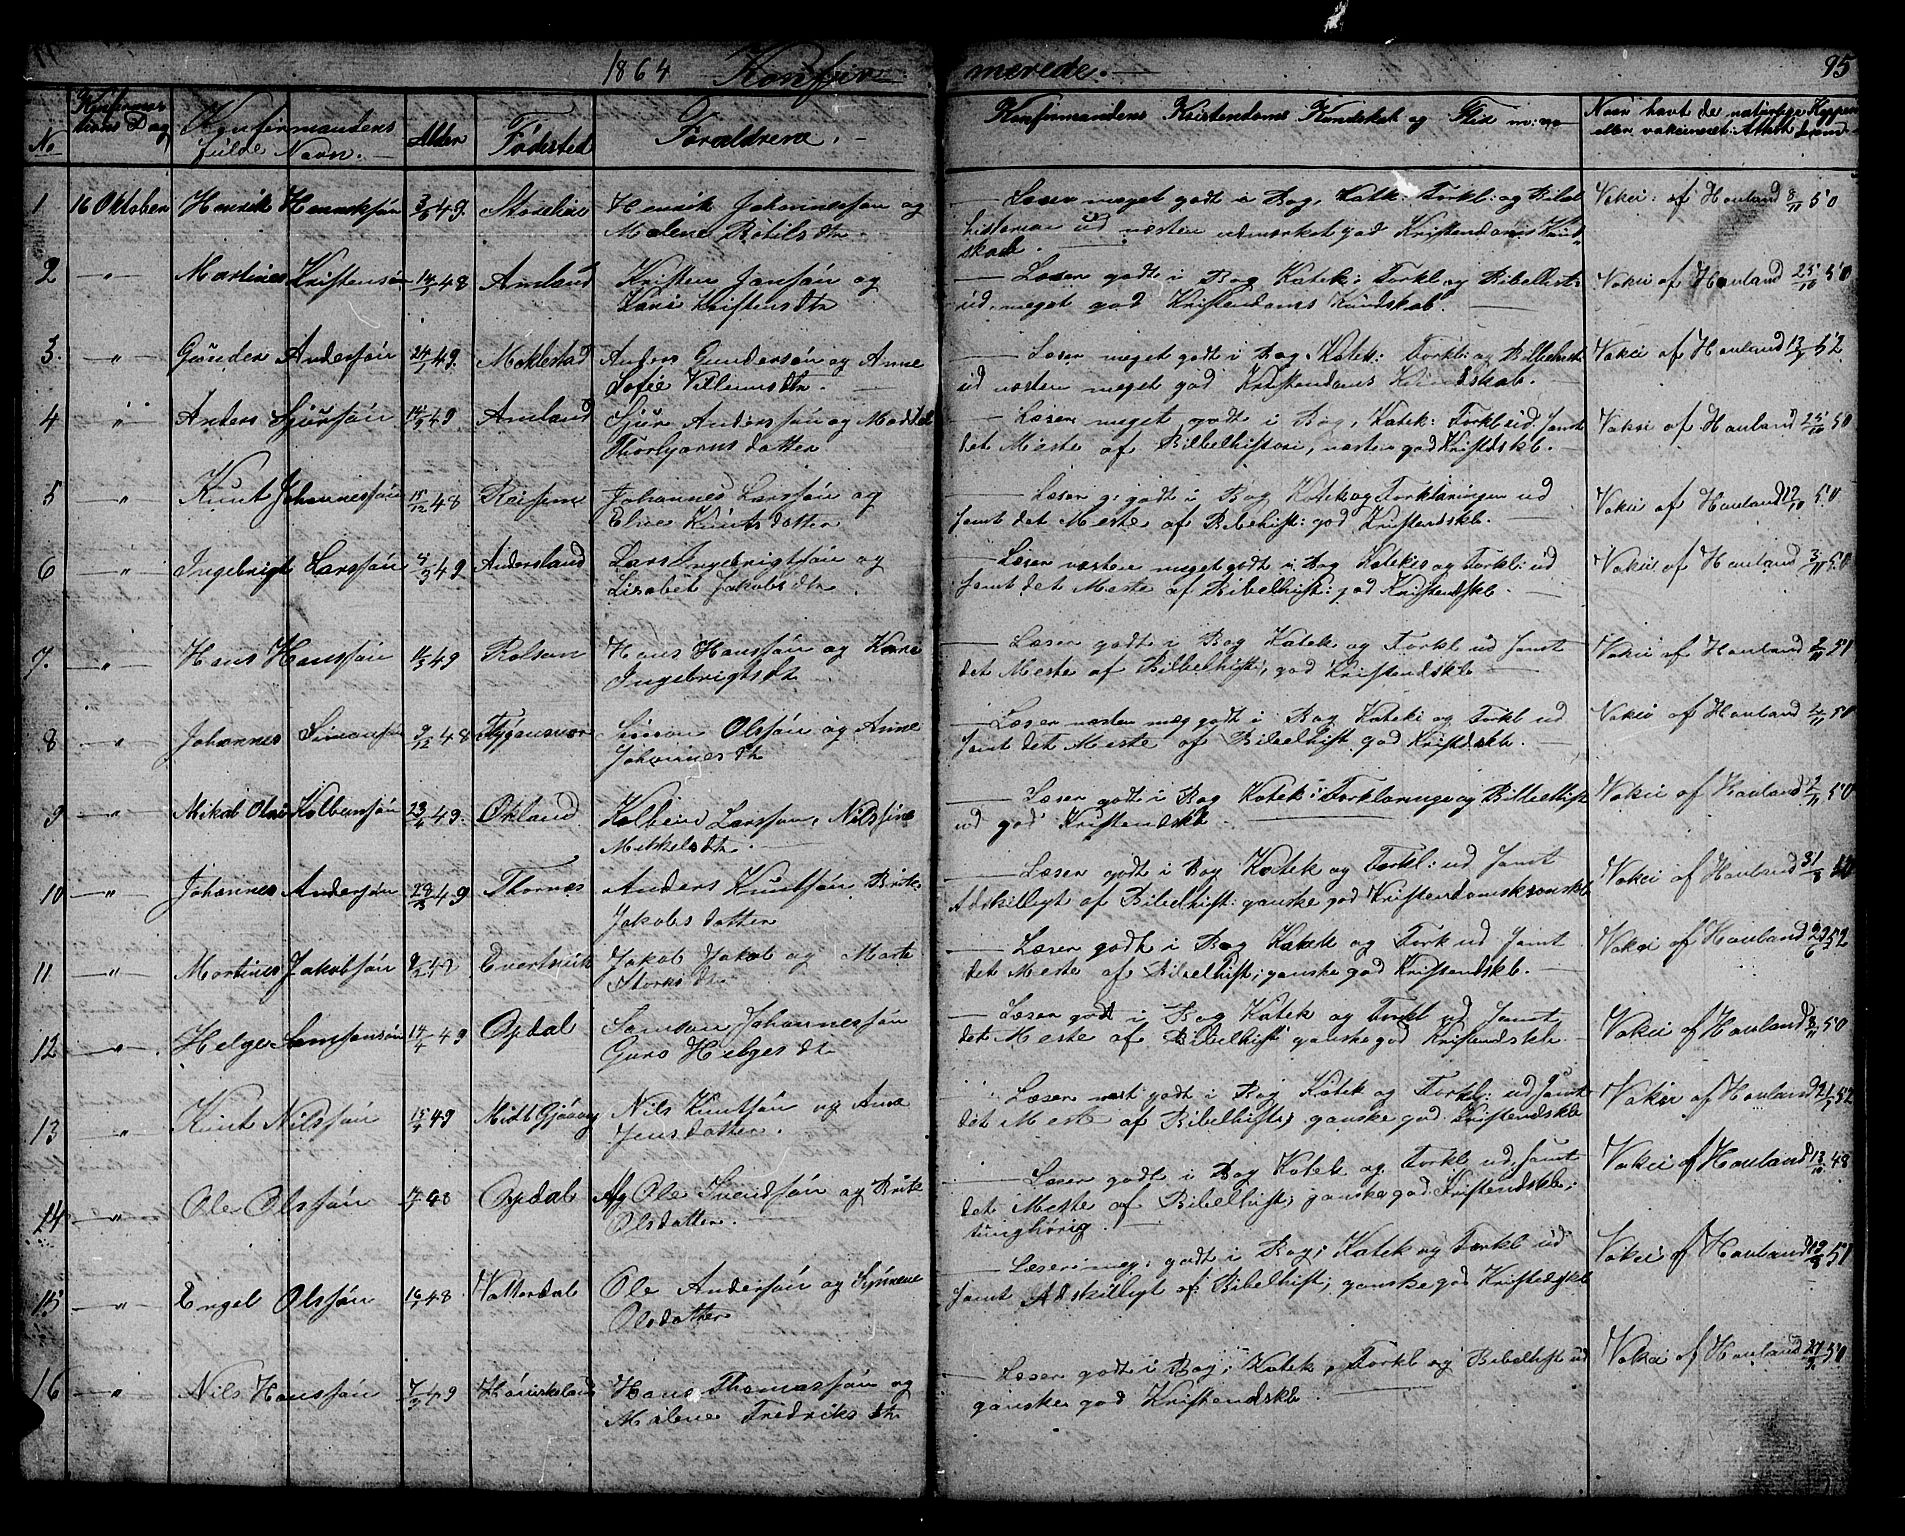 1864 Konfir merede. 95
No
Konfirmas
tions Dag
Konfirmandens
fulde Navn.
Alder
Fødested
Forældrene.
Konfirmandens Kristendoms Kundskab og Flid m: m
Naar havt de naturlige Kopper
eller vakcineret: Attest derom
1 16 Oktober Henrik Henriksøn 49. Henrik Johannessøn og
Malene Botilsdtr.
Læser meget godt i Bog, Katk: Forkl: og Bibel
historien ud næsten udmærket god Kristendoms Kund
skab.
Vakci: af Houland 8/11 50
2 " Martines Kristensøn 48 Amland Kristen Jansøn og
Kari Kristensdtr
Læser godt i Bog Katek: Forkl og Bibelhist:
ud, meget god Kristendoms Kundskab.
Vakci af Houland 25/10 50
3. " Gunder Anderssøn 24/1 49. Moklestad Anders Gundersøn og Anne
Sofie Villumsdtr.
Læser meget godt i Bog, Katek: Forkl: og Bibelhist
ud næsten meget god Kristendoms Kundskab.
Vakci af Houland 52
4 " Anders Sjursøn 49 Amland Sjur Anderssøn og
Thorbjørnsdatter
Læser meget godt i Bog, Katek: Forkl ud Samt
det Meste af Bibelhistori, næsten god Kristdskb.
Vakci af Houland 25/10 50
5 " Knut Johannessøn 15/12 48 Johannes Larssøn og
Eline Knutsdatter
Læser g: godt i Bog Katek og Forklaringen ud
Samt det Meste af Bibelhist: god Kristendskb.
Vakci af Houland 50
6 " Ingebrigt Larssøn 49 Andersland Lars Ingebrigtssøn og
Lisabet Jakobsdtr.
Læser næsten meget godt i Bog Katekis og Forkl: ud
Samt det Meste af Bibelhist: god Kristendskb.
Vakci af Houland 3/11 50
7. " Hans Hanssøn 49 Hans Hanssøn og Kari
Ingebrigtsdtr
Læser godt i Bog Katek og Forkl ud Samt
det Meste af Bibelhist, god Kristendskb
Vakci af Houland 51
8 " Johannes Simonsøn 9/12 48 Simon Olssøn og Anne
Johannesdtr
Læser næsten meg godt i Bog Kateki og Forkl ud
Samt det Meste af Bibelhist god Kristdskb.
Vakci af Houland 2/11 50
9 " Mikal Kolbensøn 23/4 49. Økland Kolbein Larsson, Nilssine
Mikkelsdtr.
Læser godt i Bog Katek: Forklaringe og Bibelhist
ud god Kristendskb.
Vakci af Houland 2/11 50
10 " Johannes Anderssøn 28/3 49 Thornæs Anders Knutsøn Brite
Jakobsdatter
Læser godt i Bog Katek og Forkl: ud Samt
Adskilligt af Bibelhist: ganske god
Vakci af Houland
11 " Martines Jakobsøn Jakob Jakob og Marte
Storksdtr
Læser godt i Bog Katek og Fork ud Samt
det Meste af Bibelhist, ganske god Kristendskb.
Vakci af Houland 52
12 " Helge Samsonsøn 14/4 49 Opdal Samson Johannessøn
Guro Helgesdtr
Læser godt i Bog Katek og Forkl ud Samt
det Meste af Bibelhist ganske god Kristendskb.
Vakci af Houland 50
13 " Knut Nilssøn 49 Midt Gjøavåg Nils Knutsøn og Ana
Jensdatter.
Læser næst godt i Bog Katek og Forkl: ud Samt
det Meste af Bibelhist; ganske god Kristendskb
Vakci af Houland 52
14 " Ole Olssøn 48 Opdal Ole Svendsøn og Brite
Olsdatter.
Læser godt i Bog Katek og Forkl ud Samt
det Meste af Bibelhist, ganske god Kristendskb;
tunghørig.
Vakci af Houland 48
15 " Engel Olssøn 48 Vatterdal Ole Anderssøn og Synneve
Olsdatter
Læser meg: godt i Bog; Katek og Forkl ud
Samt Adskilligt af Bibelhist; ganske god Kristedskb
Vakci af Houland 51
16 " Nils Hanssøn 7/3 49 Hans Thomassøn og
Malene Fredriksdtr
Læser godt i Bog; Katek, Forkl og Bibelhist ud
ganske god Kristendskb
Vakci af Houland 50